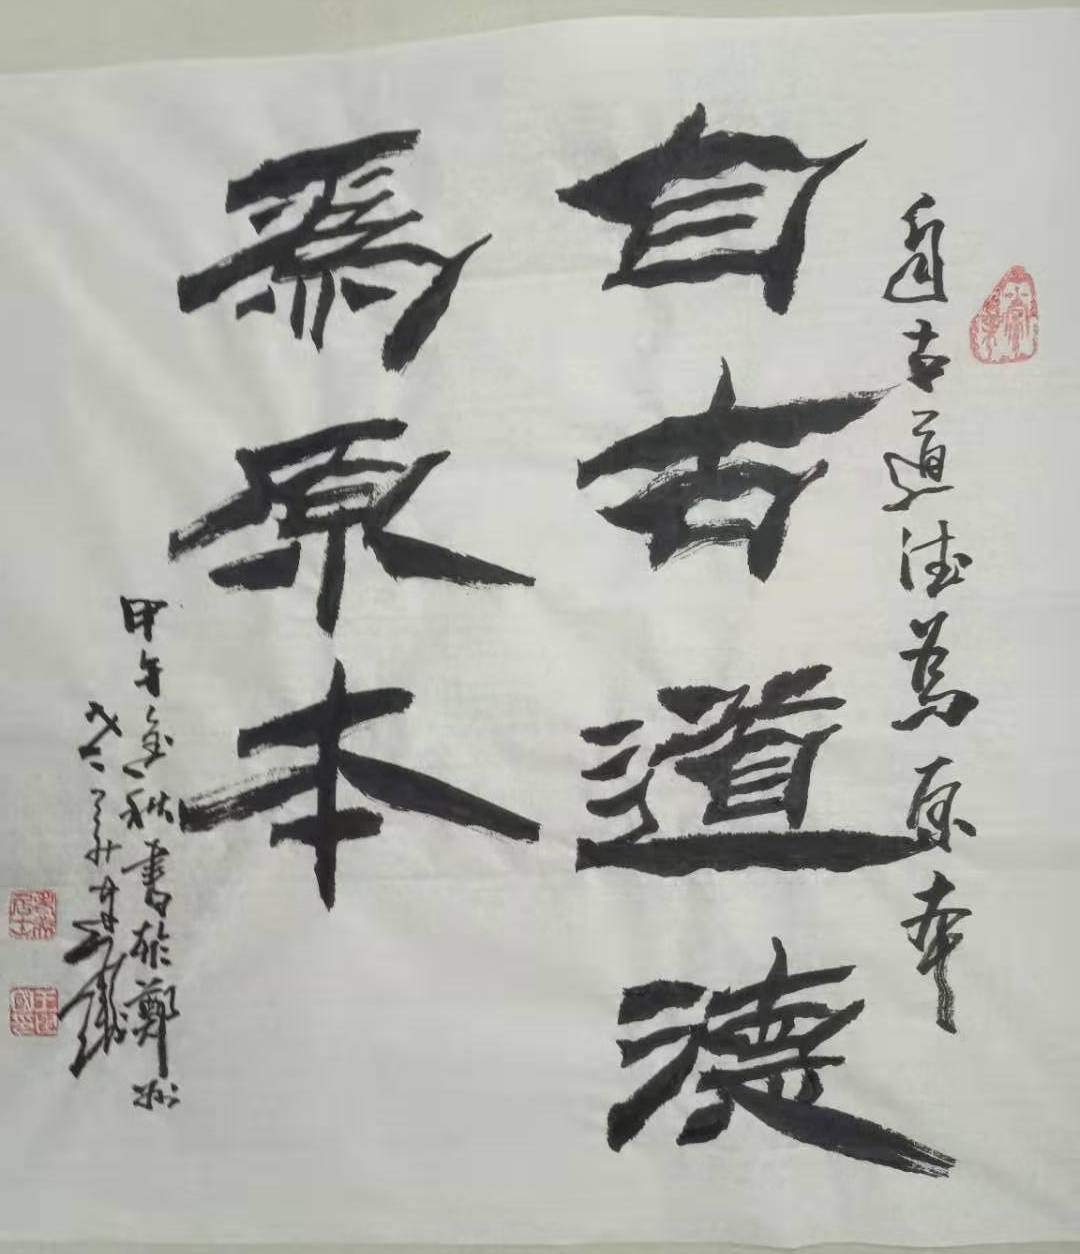 自古道德为原本
自古道德
為原本
甲午金秋書於鄭州